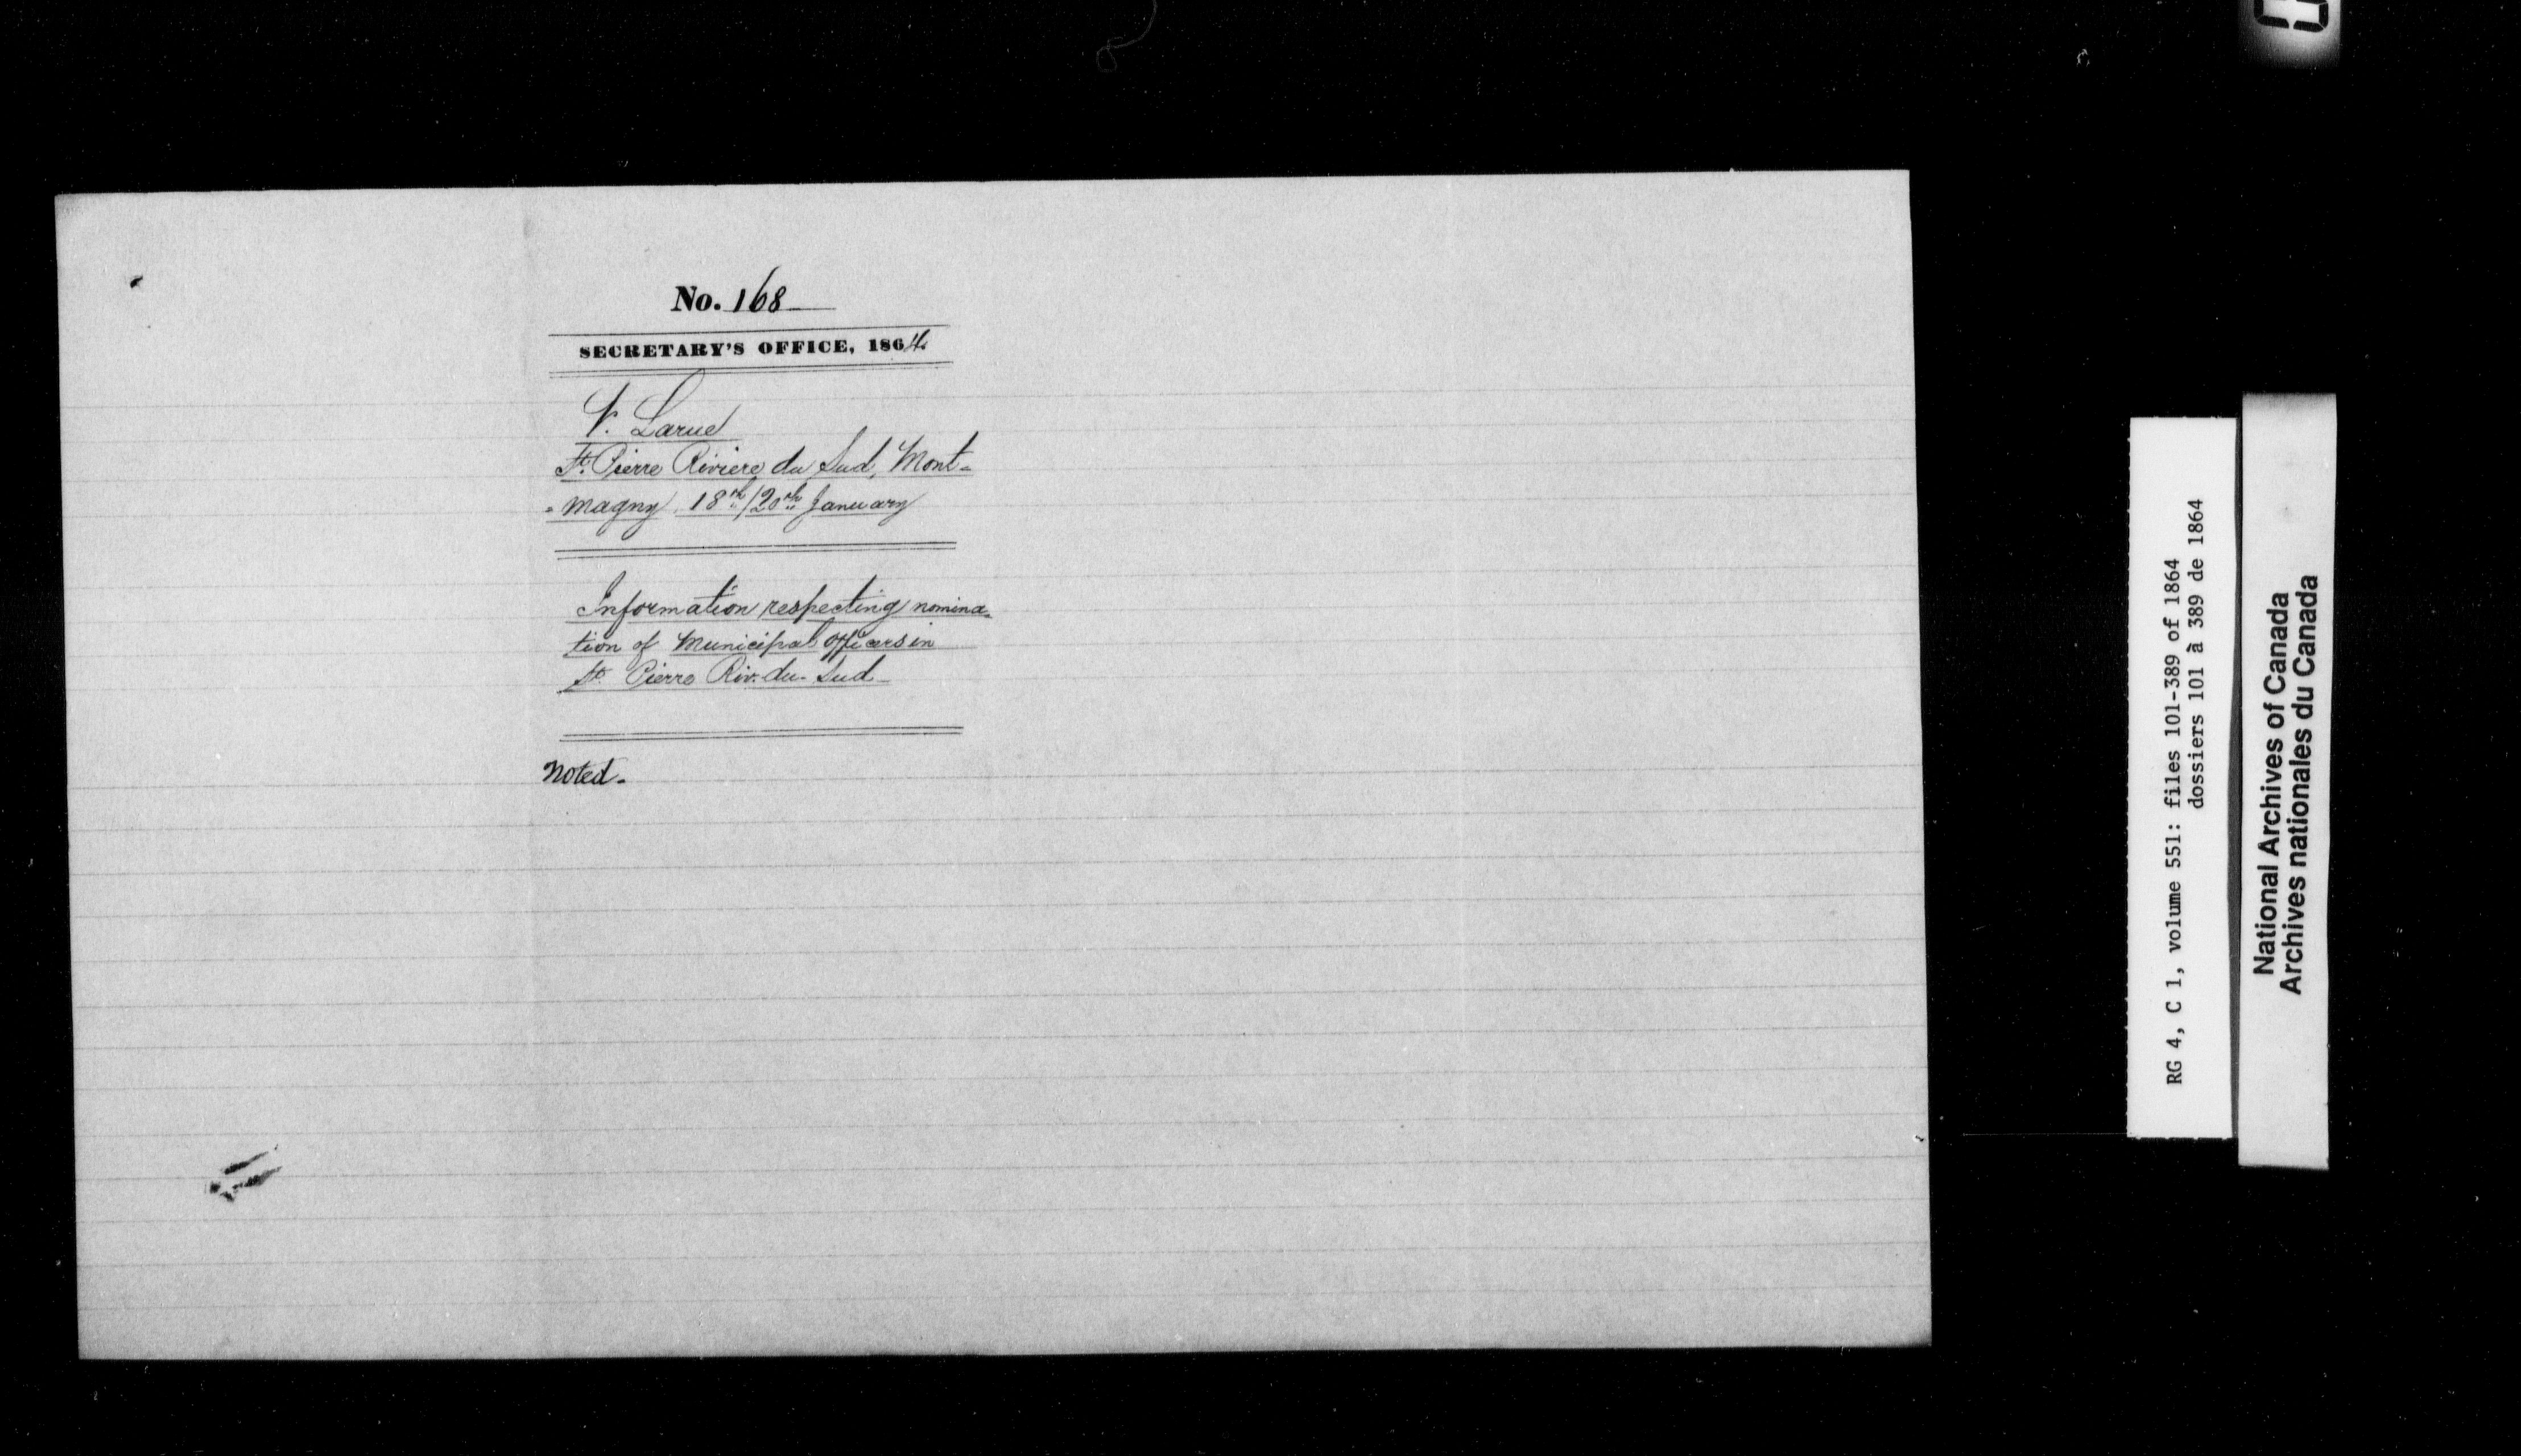 No. 168
SECRETARY'S OFFICE, 1864
V. Larue
St. Pierre Riviere du Sud, Mont-
-magny, 18th/20th January
Information respecting nomina-
tion of Municipal Officers in
St. Pierre Riv. du Sud
Noted.
RG 4, C 1, volume 551: files 101-389 of 1864
dossiers 101 à 389 de 1864
National Archives of Canada
Archives nationales du Canada